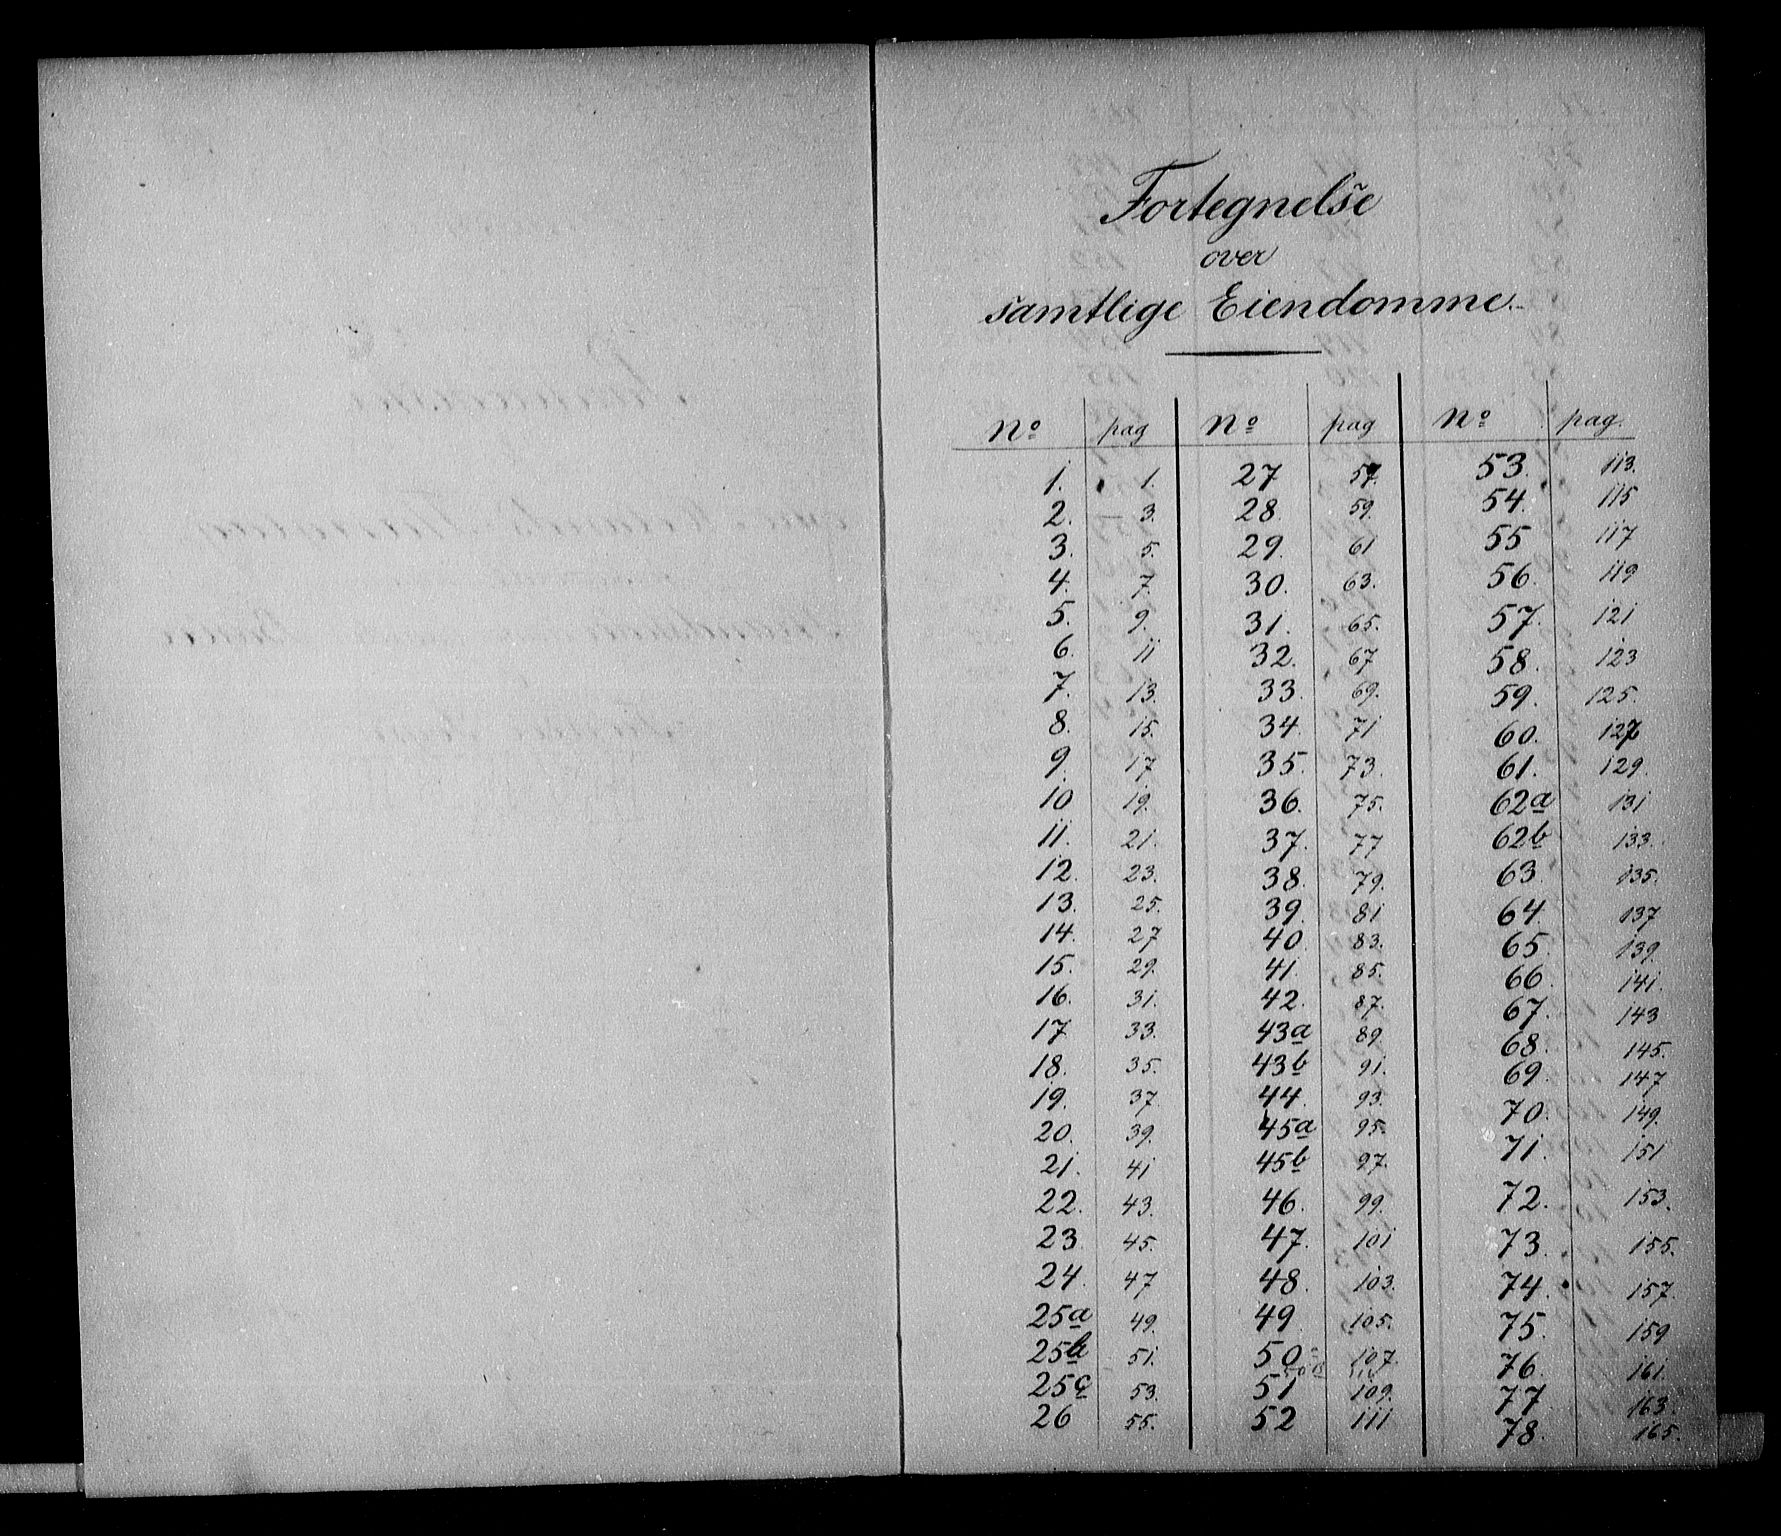 Fortegnelse
over
samtlige Eiendomme.
No pag No pag No pag.
1. 1. 27 57. 53. 113.
2. 3. 28. 59. 54. 115
3. 5. 29. 61 55 117
4. 7. 30. 63. 56. 119
5. 9. 31. 65. 57. 121
6. 11 32. 67 58. 123
7. 13. 33. 69. 59. 125.
8. 15. 34. 71 60. 127
9. 17 35. 73. 61. 129.
10 19. 36. 75. 62a 131
11. 21. 37. 77 62b 133.
12. 23. 38. 79. 63. 135.
13. 25. 39. 81 64. 137
14. 27 40. 83. 65. 139.
15. 29. 41. 85. 66. 141.
16. 31. 42. 87. 67. 143
17 33. 43a 89. 68. 145.
18. 35. 43b 91. 69. 147
19. 37. 44. 93. 70. 149.
20. 39. 45a 95. 71. 151
21. 41 45b 97. 72. 153.
22. 43. 46. 99. 73. 155.
23. 45. 47. 101 74. 157.
24. 47 48. 103. 75. 159
25a 49. 49 105. 76. 161.
25b 51. 50 107. 77 163.
25c 53. 51 109. 78. 165.
26 55. 52 111